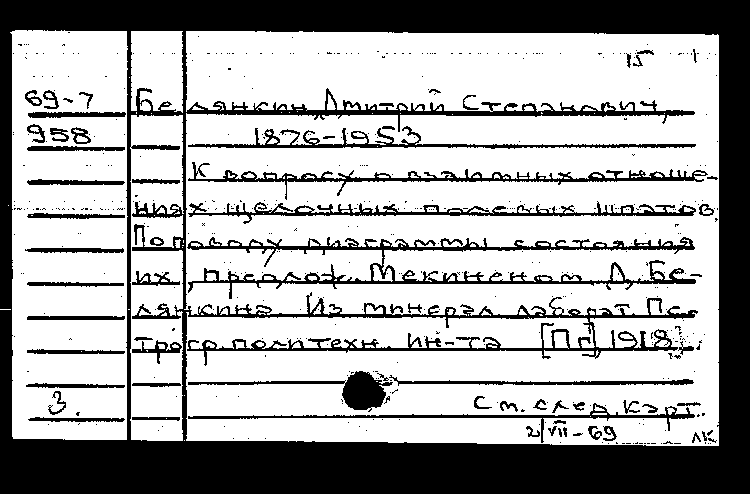 15
69-7 Белянкин, Дмитрий Степанович,
958 1876-1953
К вопросу о взаимных отноше-
ниях щелочных полевых шпатов.
По поводу диаграммы состояния
их, предлож. Мекиненом. Д. Бе-
лянкина. Из минерал. лаборат. Пе-
трогр. политехн. ин-та [Пг], 1918.
3. См. след. карт.
2/VII-69 ЛК